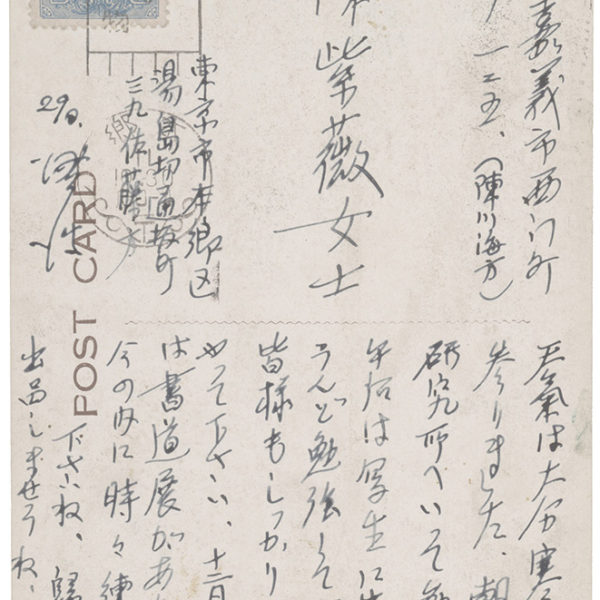 嘉義市西門町
一二五、(陳川海方)
紫薇女士
東京市本郷区
湯島切通坂町
三九佐藤方
29日.
POST CARD
天氣は大分寒
参りました、朝
研究所へいって
午后は写生に
うんと勉強して
皆様もしっかり
やって下さい、十二月
は書道展があ
今の内に時々練
下さいね、帰
出品しませうね、